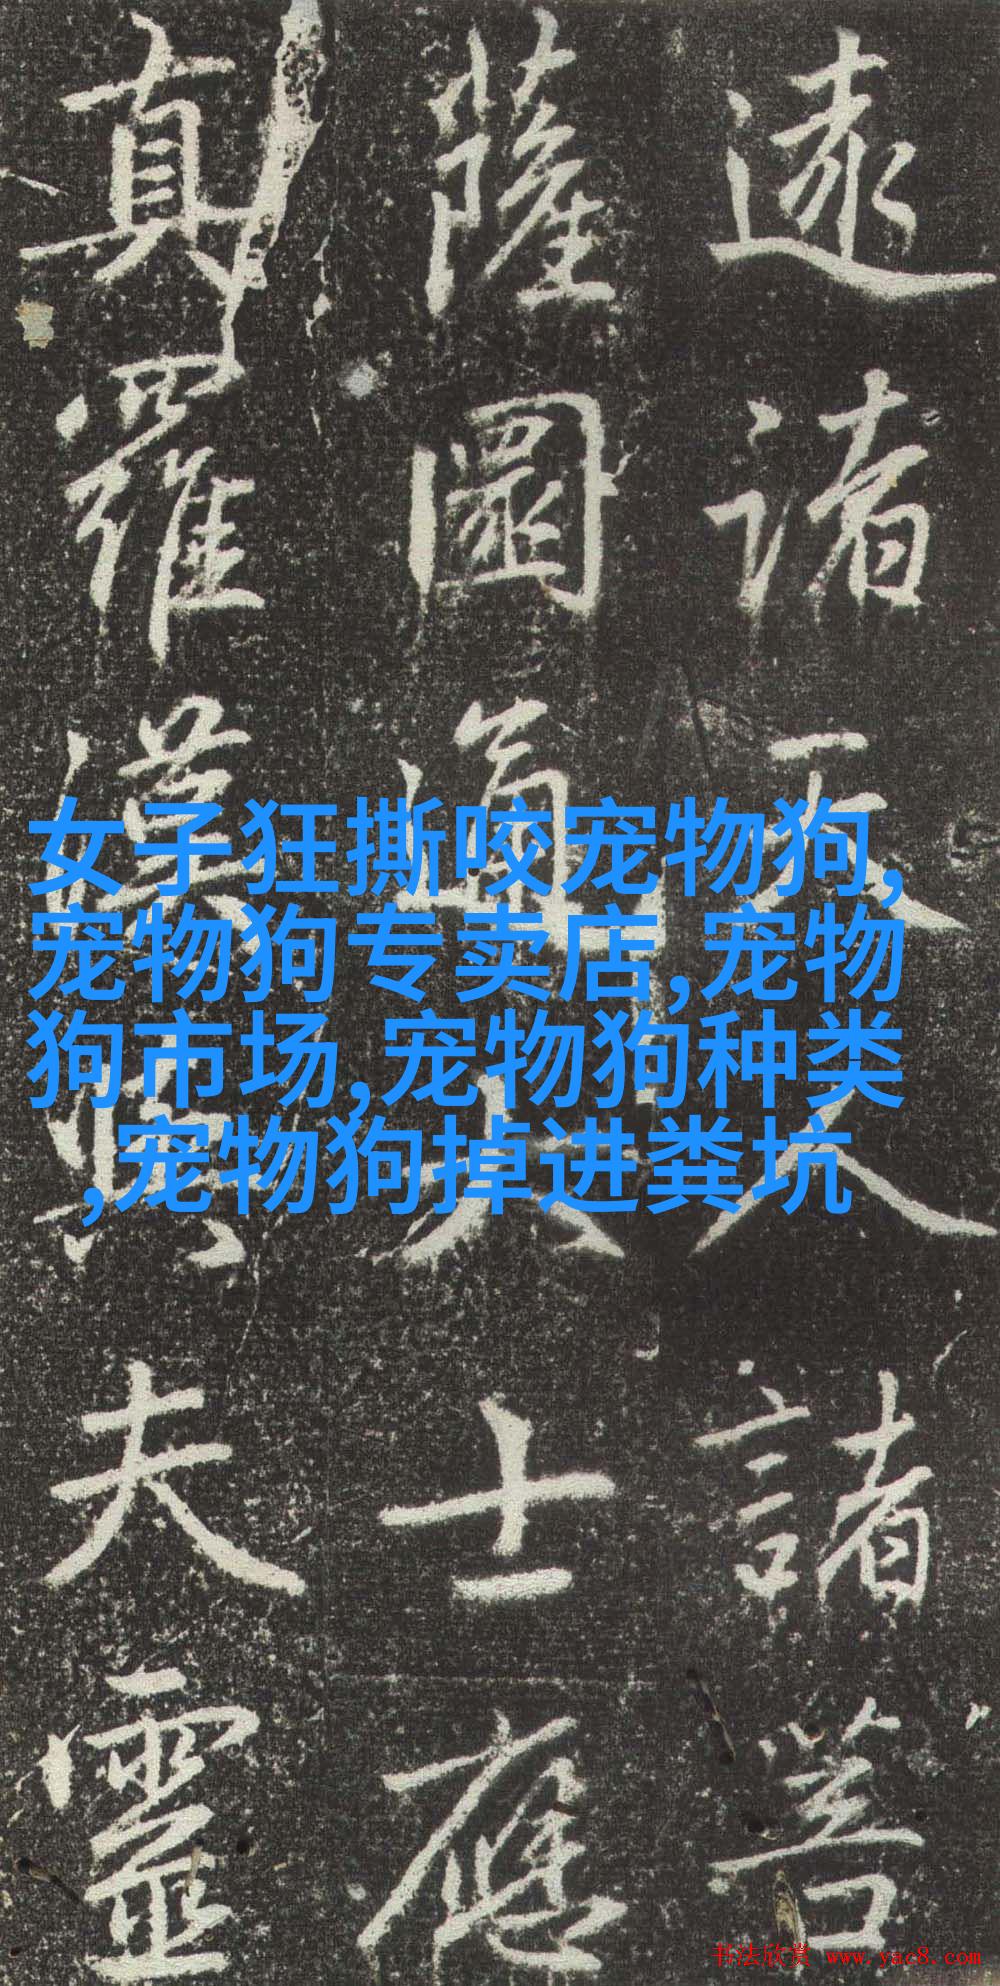 諸天人諸菩
薩大士應
真羅漢夫靈
女子狂撕咬宠物狗,
宠物狗专卖店,宠物
狗市场,宠物狗种类
,宠物狗掉进粪坑
书法欣赏 www.yac8.com